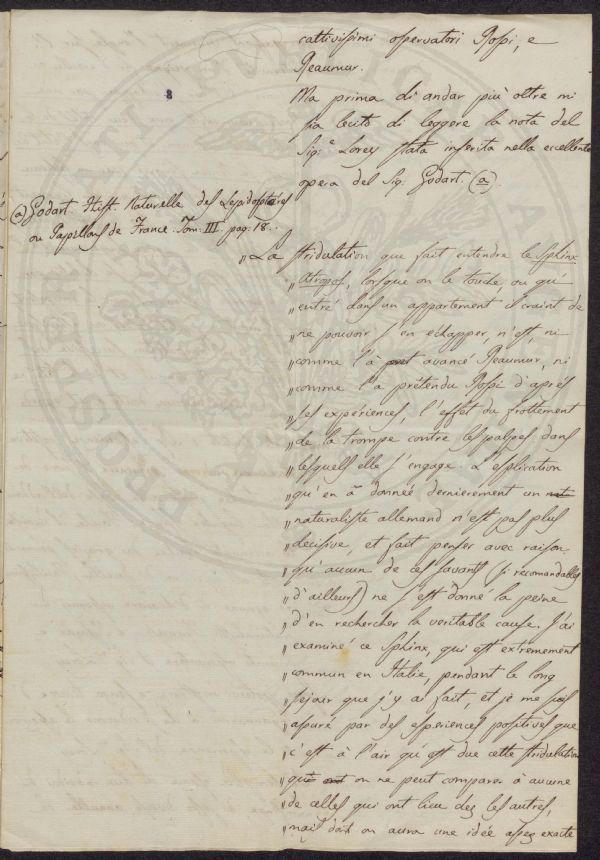 8
cattivissimi osservatori Rossi, e
Reaumur.
Ma prima di andar più oltre mi
sia lecito di leggere la nota del
Sig.e Lorey stata inserita nella eccellente
opera del Sig. Godart. (a)
(a) Godart. Hist. Naturelle des Lepidoptéres
ou Papillons de France. Tom. III. pag. 18.
"La stridulation que fait entendre le Sphinx
"Atropos, lorsque on le touche, ou qu'
"entré dans un appartement il craint de
"ne pouvoir s'en echapper, n'est, ni
"comme l'à avancé Reaumur, ni
"comme l'a prétendu Rossi d'après
"ses experiences, l'effet du frottement
"de la trompe contre les palpes dans
"lesquels elle s'engage. L'esplication
"qu'en à donneé dernierement un
"naturaliste allemand n'est pas plus
"decisive, et fait penser avec raison
"qu'aucun de ces savants (si recomandables
"d'ailleurs) ne s'est donné la peine
"d'en rechercher la veritable cause. J'ai
"examiné ce Sphinx, qui est extremement
"commun en Italie, pendant le long
"sejour que j'y ai fait, et je me suis
"assuré par des esperiences positives que
"c'est à l'air qu'est due cette stridulation
"que on ne peut comparer à aucune
"de celles qui ont lieu dez les autres,
"mais dont on aura une idée assez exacte